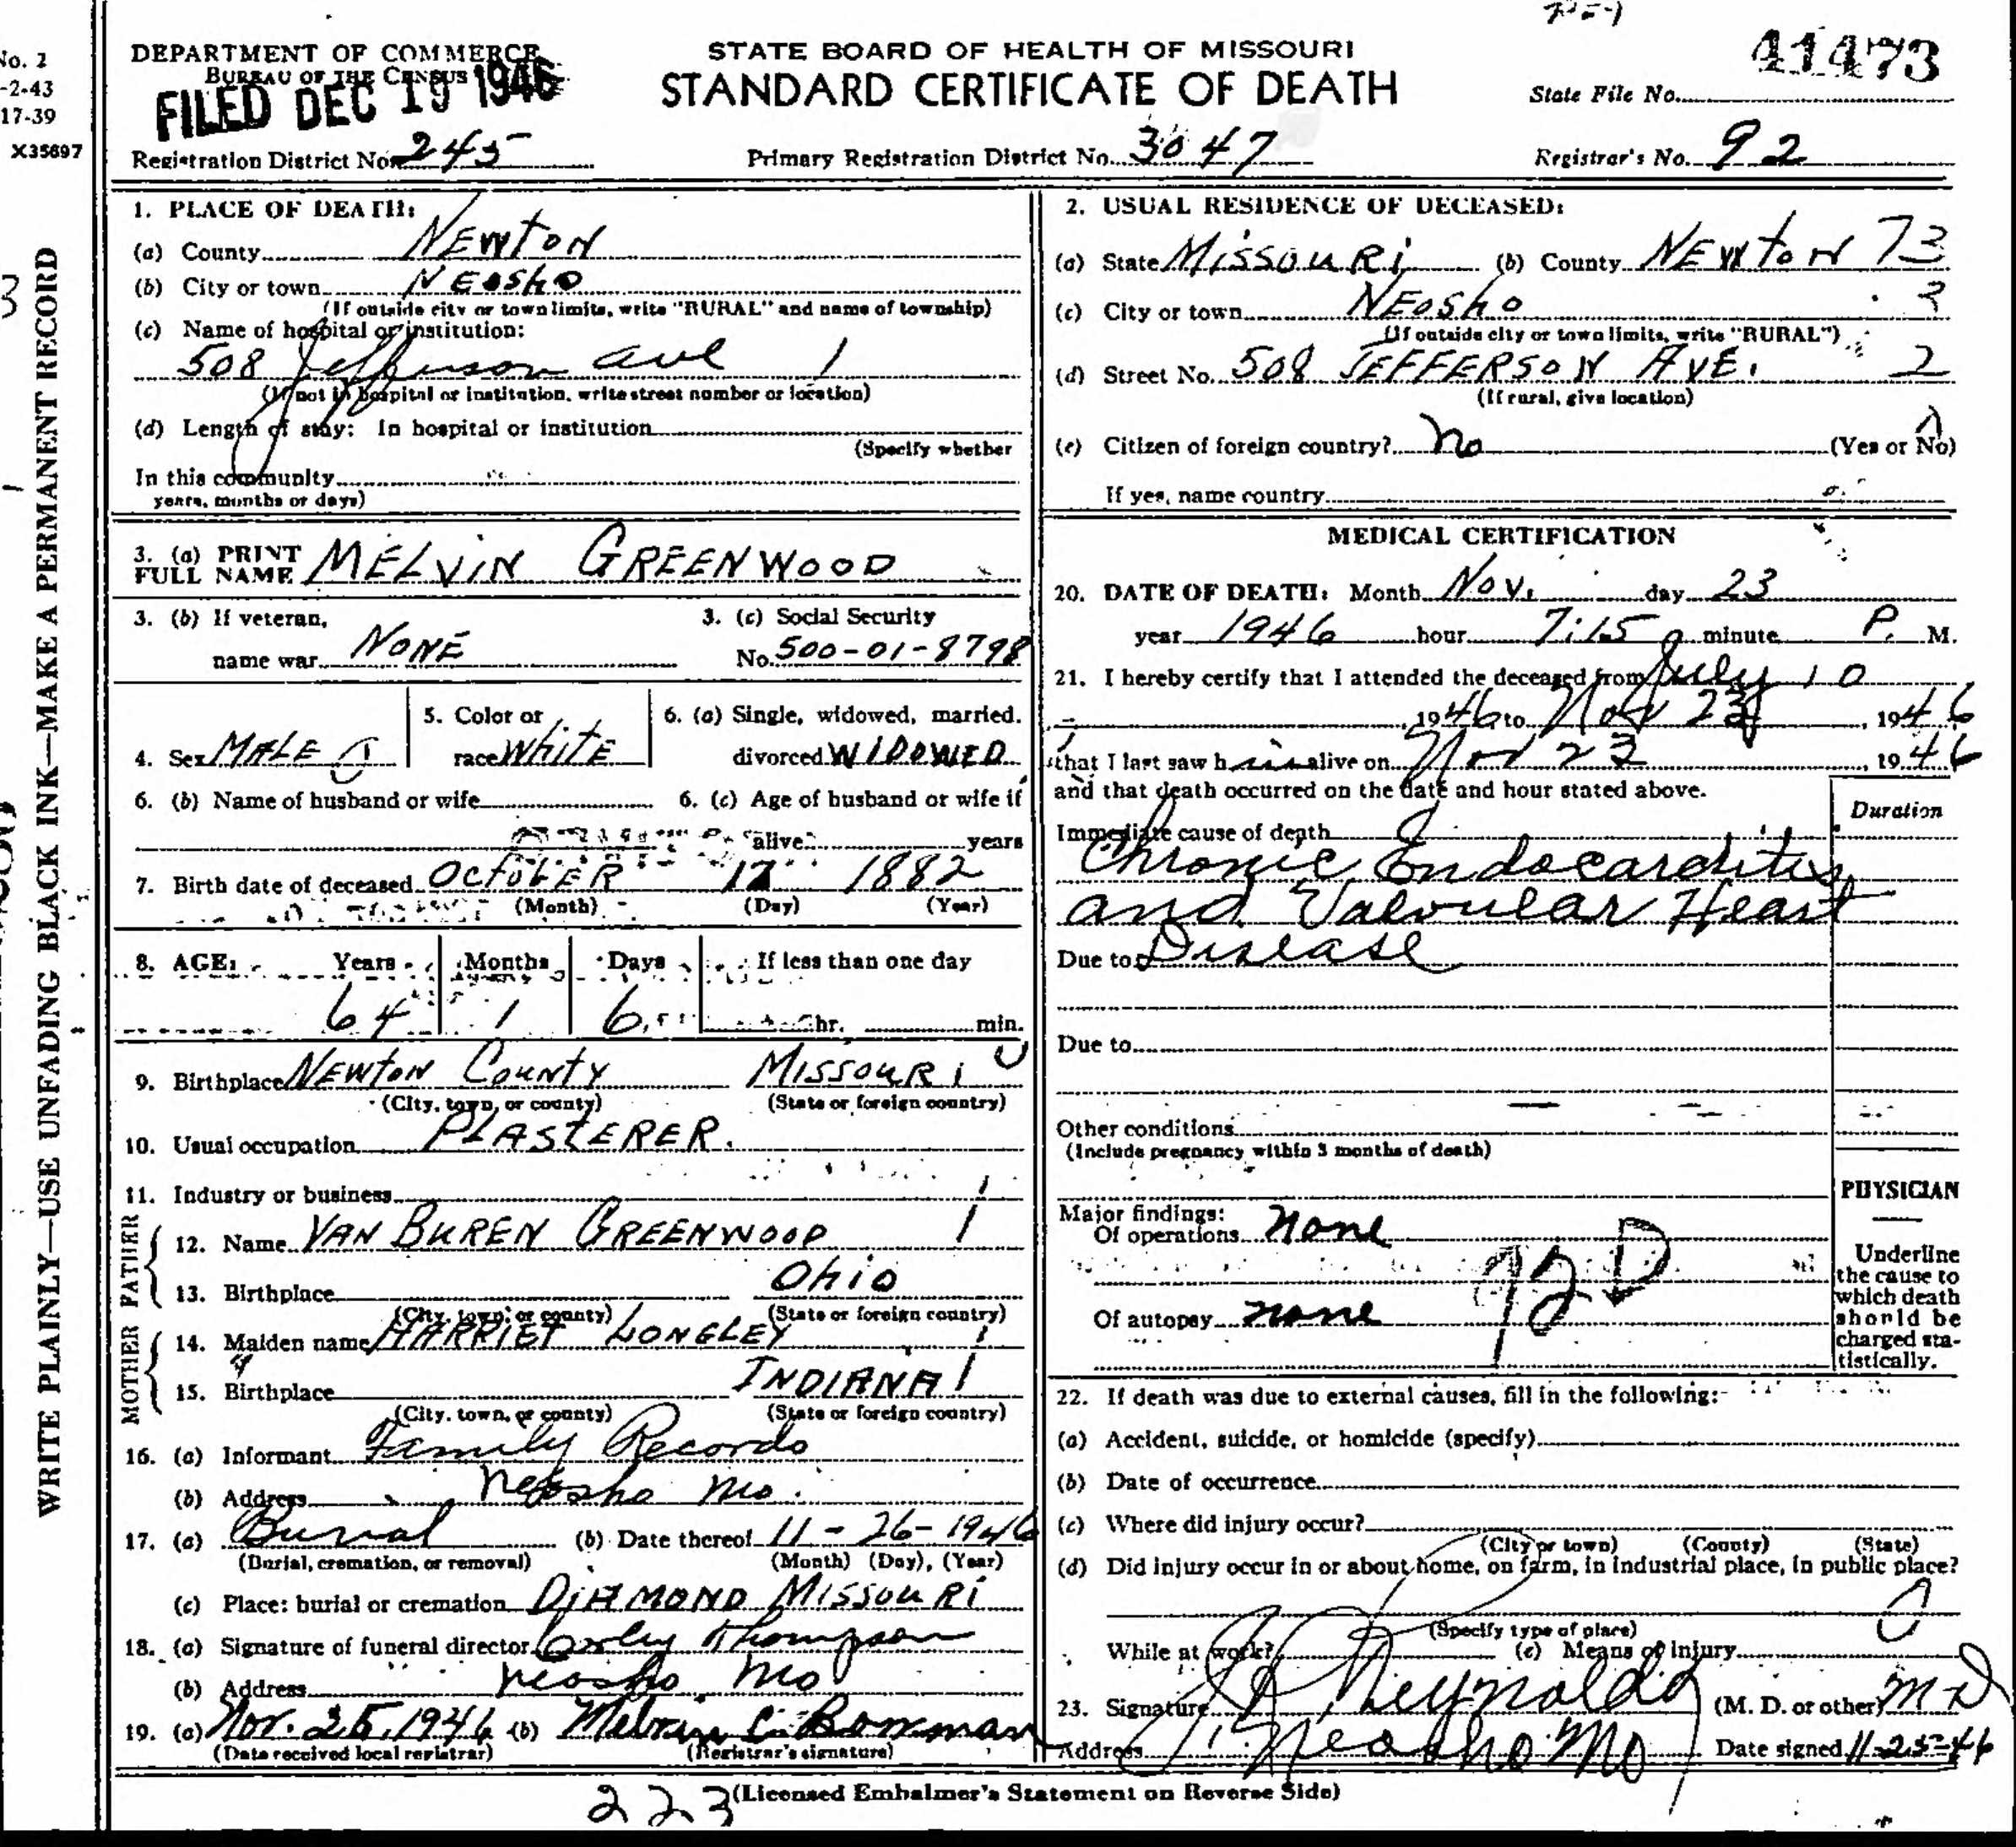 41473
DEPARTMENT OF COMMERCE
BUREAU OF THE CENSUS
FILED DEC 19 1946
STATE BOARD OF HEALTH OF MISSOURI
STANDARD CERTIFICATE OF DEATH
State File No.
No. 2
-2-43
17-39
X35697
Registration District No. 245
Primary Registration District No. 3047
Registrar's No. 92
WRITE PLAINLY—USE UNFADING BLACK INK—MAKE A PERMANENT RECORD
1. PLACE OF DEATH:
(a) County NEWTON
(b) City or town NEOSHO
(If outside city or town limits, write "RURAL" and name of township)
(c) Name of hospital or institution:
508 Jefferson ave 1
(If not in hospital or institution, write street number or location)
(d) Length of stay: In hospital or institution
(Specify whether
In this community
years, months or days)
2. USUAL RESIDENCE OF DECEASED:
(a) State MISSOURI (b) County NEWTON 73
(c) City or town NEOSHO 3
(If outside city or town limits, write "RURAL")
(d) Street No. 508 JEFFERSON AVE. 2
(If rural, give location)
(e) Citizen of foreign country? No (Yes or No)
If yes, name country
3. (a) PRINT FULL NAME MELVIN GREENWOOD
3. (b) If veteran, name war NONE
3. (c) Social Security No. 500-01-8798
4. Sex MALE
5. Color or race WHITE
6. (a) Single, widowed, married, divorced WIDOWED
6. (b) Name of husband or wife
6. (c) Age of husband or wife if alive years
7. Birth date of deceased OCTOBER 17 1882
(Month) (Day) (Year)
8. AGE: Years Months Days If less than one day
64 1 6 hr. min.
9. Birthplace NEWTON COUNTY MISSOURI
(City, town, or county) (State or foreign country)
10. Usual occupation PLASTERER.
11. Industry or business
FATHER
12. Name VAN BUREN GREENWOOD
13. Birthplace OHIO
(City, town, or county) (State or foreign country)
MOTHER
14. Maiden name HARRIET LONGLEY
15. Birthplace INDIANA
(City, town, or county) (State or foreign country)
16. (a) Informant Family Records
(b) Address Neosho Mo.
17. (a) Burial (b) Date thereof 11-26-1946
(Burial, cremation, or removal) (Month) (Day), (Year)
(c) Place: burial or cremation DIAMOND MISSOURI
18. (a) Signature of funeral director Thompson
(b) Address Neosho Mo
19. (a) Nov. 25, 1946 (b) Melvin C. Bowman
(Date received local registrar) (Registrar's signature)
MEDICAL CERTIFICATION
20. DATE OF DEATH: Month Nov. day 23
year 1946 hour 7:15 minute P. M.
21. I hereby certify that I attended the deceased from July 10
, 1946 to Nov 23, 1946
that I last saw him alive on Nov 23, 1946
and that death occurred on the date and hour stated above.
Duration
Immediate cause of death
Chronic Endocarditis
and Valvular Heart
Due to Disease
Due to
Other conditions
(Include pregnancy within 3 months of death)
Major findings:
Of operations none
92D
Of autopsy none
PHYSICIAN
Underline
the cause to
which death
should be
charged sta-
tistically.
22. If death was due to external causes, fill in the following:
(a) Accident, suicide, or homicide (specify)
(b) Date of occurrence
(c) Where did injury occur?
(City or town) (County) (State)
(d) Did injury occur in or about home, on farm, in industrial place, in public place?
(Specify type of place)
While at work? (e) Means of injury
23. Signature Reynolds (M. D. or other) MD
Address Neosho Mo Date signed 11-25-46
223
(Licensed Embalmer's Statement on Reverse Side)